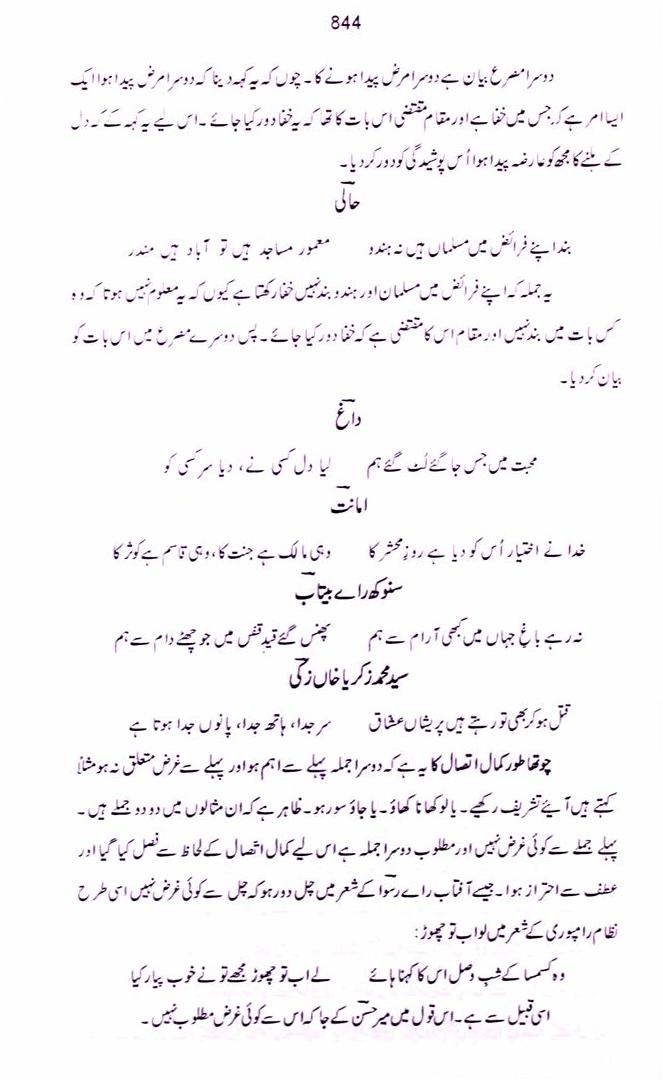 844
دوسرا مصرع بیان ہے دوسرا مرض پیدا ہونے کا۔ چوں کہ یہ کہہ دینا کہ دوسرا مرض پیدا ہوا ایک
ایسا امر ہے کہ جس میں خفا ہے اور مقام مقتضی اس بات کا تھا کہ یہ خفا دور کیا جائے۔ اس لیے یہ کہہ کے کہ دل
کے ہلنے کا مجھ کو عارضہ پیدا ہوا اُس پوشیدگی کو دور کر دیا۔
حالی
بند اپنے فرائض میں مسلماں ہیں نہ ہندو معمور مساجد ہیں تو آباد ہیں مندر
یہ جملہ کہ اپنے فرائض میں مسلمان اور ہندو بند نہیں خفا رکھتا ہے کیوں کہ یہ معلوم نہیں ہوتا کہ وہ
کس بات میں بند نہیں اور مقام اس کا مقتضی ہے کہ خفا دور کیا جائے۔ پس دوسرے مصرع میں اس بات کو
بیان کر دیا۔
داغ
محبت میں جس جا گئے لُٹ گئے ہم لیا دل کسی نے، دیا سر کسی کو
امانت
خدا نے اختیار اُس کو دیا ہے روزِ محشر کا وہی مالک ہے جنت کا، وہی قاسم ہے کوثر کا
سنوکھ راے بیتاب
نہ رہے باغِ جہاں میں کبھی آرام سے ہم پھنس گئے قیدِ قفس میں جو چھٹے دام سے ہم
سید محمد زکریا خاں زکی
قتل ہو کر بھی تو رہتے ہیں پریشاں عشاق سر جدا، ہاتھ جدا، پانوں جدا ہوتا ہے
چوتھا طور کمال اتصال کا یہ ہے کہ دوسرا جملہ پہلے سے اہم ہو اور پہلے سے غرض متعلق نہ ہو مثلاً
کہتے ہیں آیئے تشریف رکھیے۔ یا لو کھانا کھاؤ۔ یا جاؤ سو رہو۔ ظاہر ہے کہ ان مثالوں میں دو دو جملے ہیں۔
پہلے جملے سے کوئی غرض نہیں اور مطلوب دوسرا جملہ ہے اس لیے کمال اتصال کے لحاظ سے فصل کیا گیا اور
عطف سے احتراز ہوا۔ جیسے آفتاب راے رسوا کے شعر میں چل دور ہو کہ چل سے کوئی غرض نہیں اسی طرح
نظام رامپوری کے شعر میں لو اب تو چھوڑ:
وہ کسمسا کے شبِ وصل اس کا کہنا ہائے لے اب تو چھوڑ مجھے تو نے خوب پیار کیا
اسی قبیل سے ہے۔ اس قول میں میر حسن کے جا کہ اس سے کوئی غرض مطلوب نہیں۔